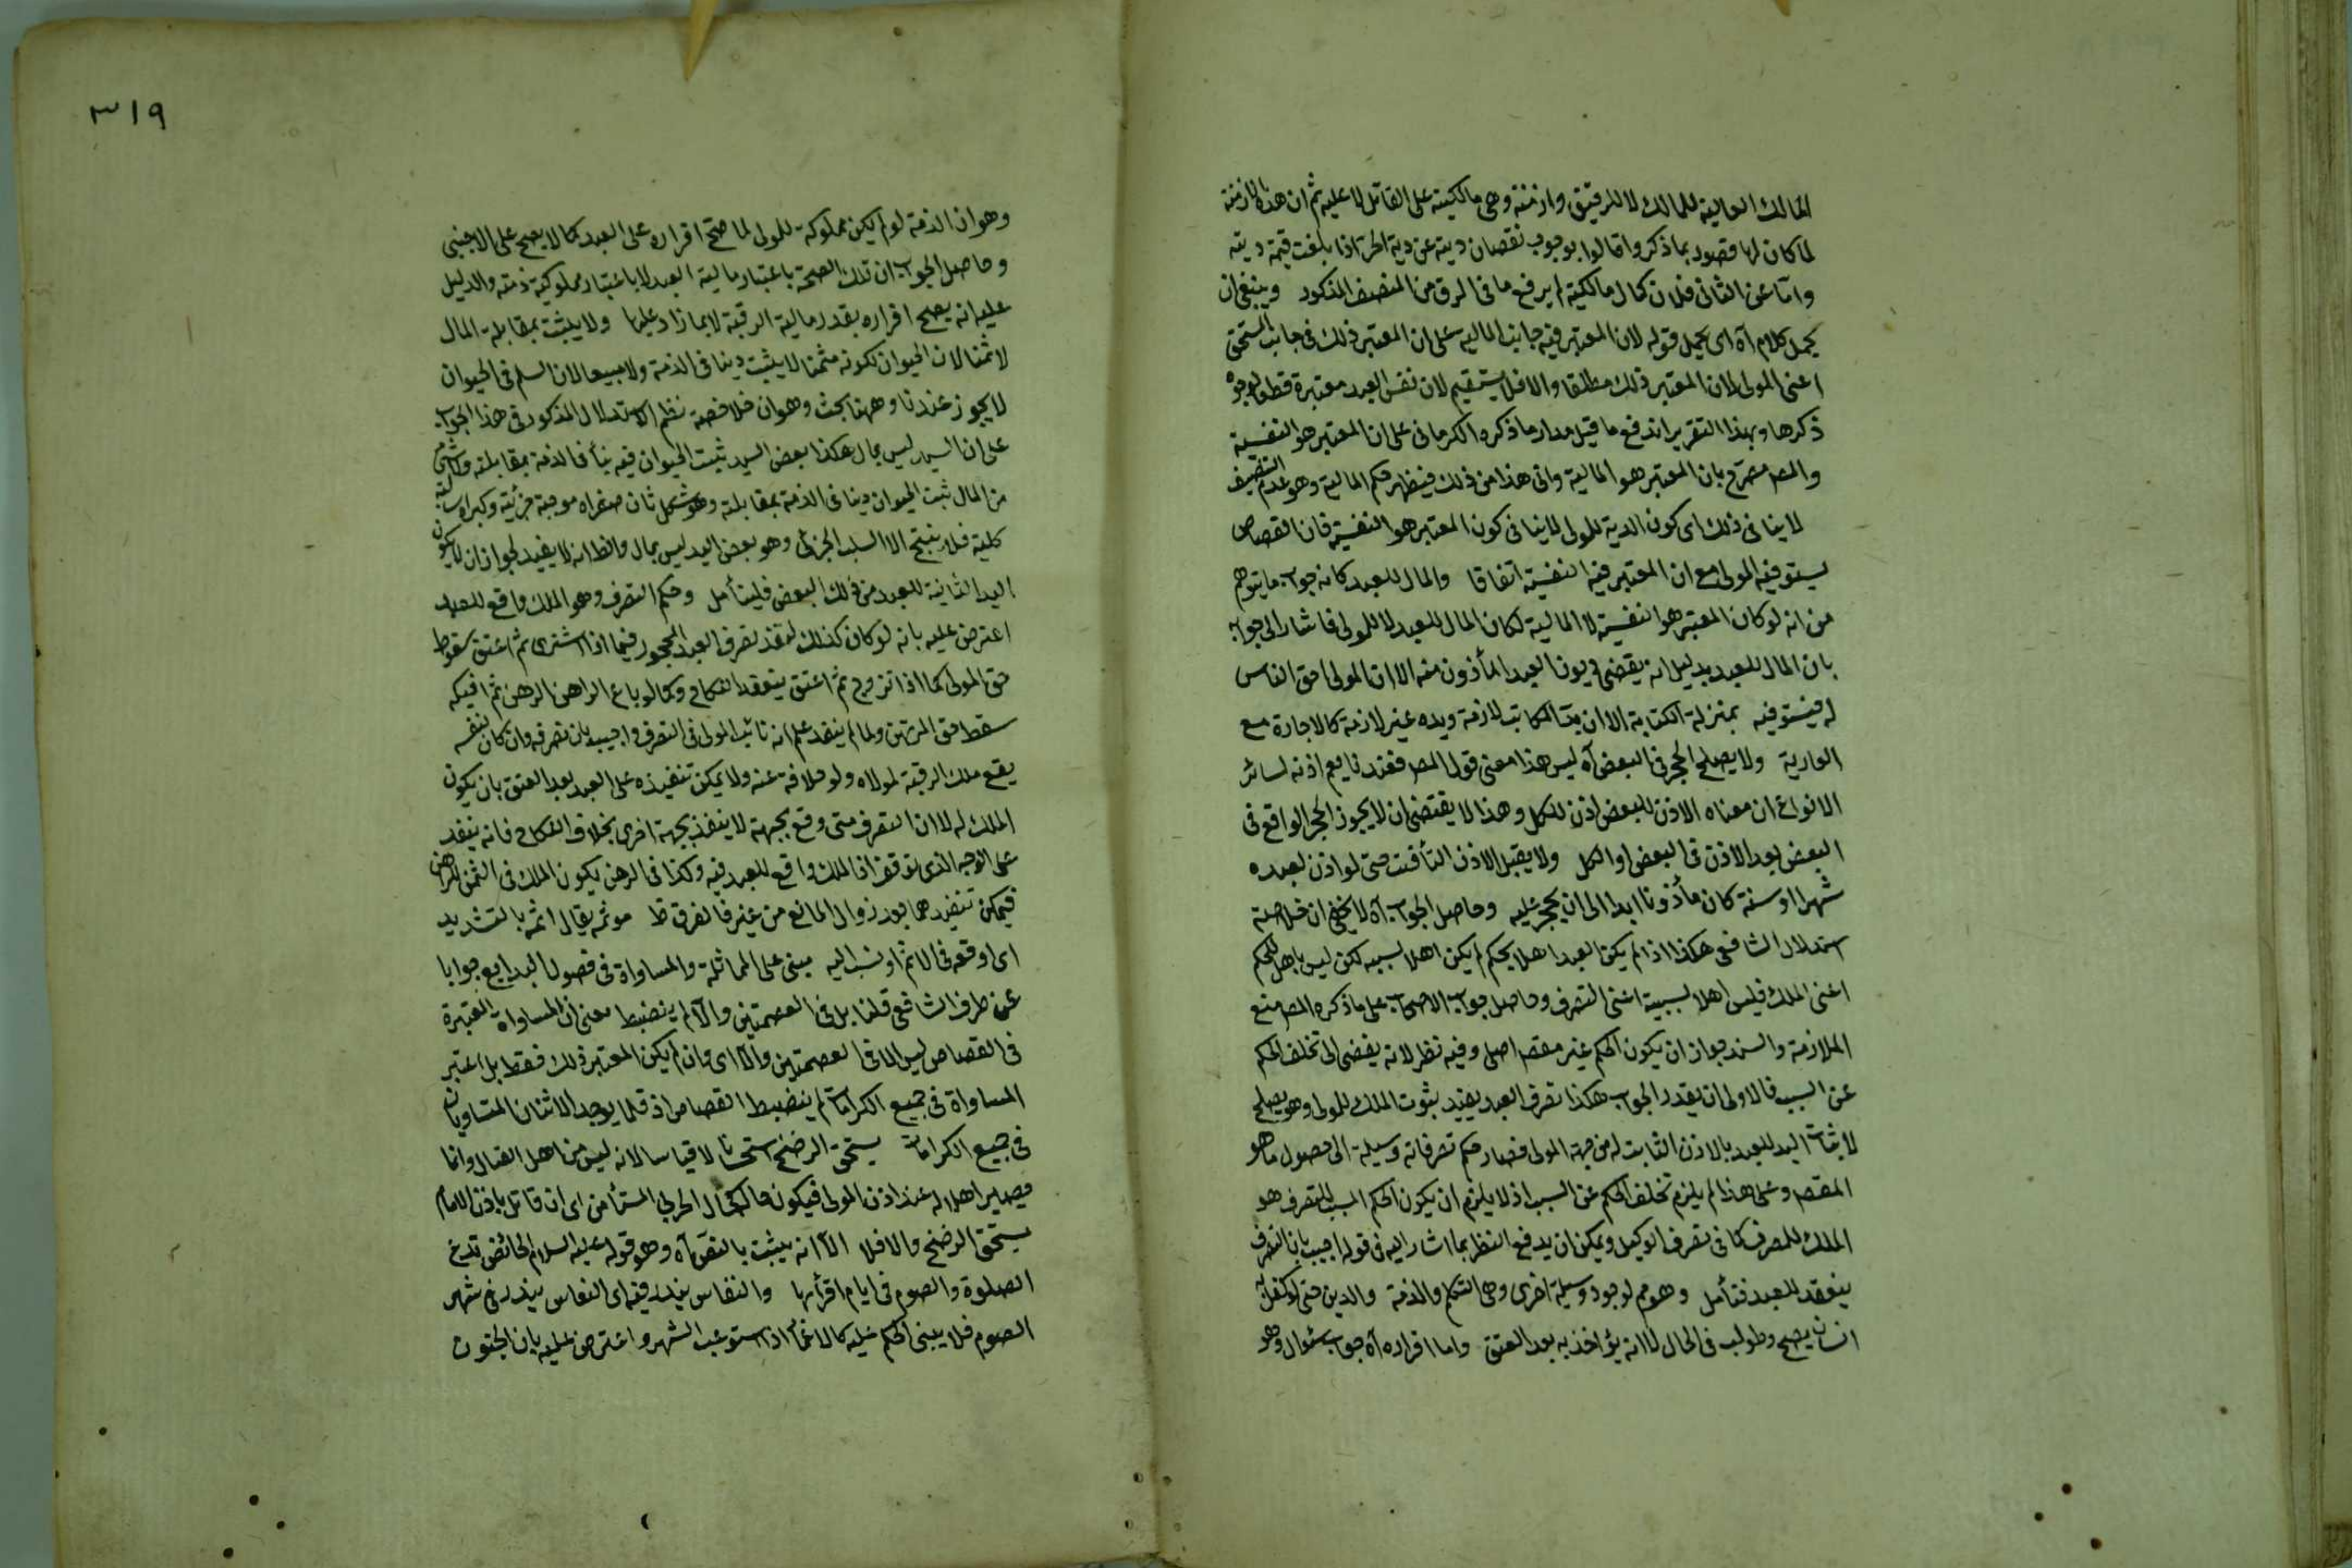 المالك العالية للمالك لا للرقيق وازمنة وهى مالكيته على القاتل لا عليه ثم ان هذه الازمنة
لما كان لها قصود بما ذكروا قالوا بوجوب نقصان ديته عن دية الحر اذا بلغت قيمته ديته
واما عن الثانى فلان كمال مالكيته لم يرفع ما فى الرق من المنصف المذكور وينبغى ان
يحمل كلام آه اى يحمل قوله لان المعتبر فيه جانب المالية على ان المعتبر ذلك فى جانب المستحق
اعنى المولى لا ان المعتبر ذلك مطلقا والا فلا يستقيم لان نفس العبد معتبرة قطعا لوجوه
ذكرها وبهذا التقرير اندفع ما قيل مدار ما ذكره الكرمانى على ان المعتبر هو النفسية
والمص مصرح بان المعتبر هو المالية وانى هذا من ذلك فيظهر حكم المالية وهو عدم التنصيف
لا ينافى ذلك اى كون الدية للمولى لا ينافى كون المعتبر هو النفسية فان القصاص
يستوفيه المولى مع ان المعتبر فيه النفسية اتفاقا والمال للعبد كانه جواب ما يتوهم
من انه لو كان المعتبر هو النفسية لا المالية لكان المال للعبد لا للمولى فاشار الى جوابه
بان المال للعبد بدليل انه يقضى ديون العبد المأذون منه الا ان المولى احق الناس
له فيستوفيه بمنزلة الكتابة الا ان يد المكاتب لازمة ويده غير لازمة كالاجارة مع
العارية ولا يصلح الحجر فى البعض آه ليس هذا معنى قول المص فعندنا يعم اذنه لسائر
الانواع ان معناه الاذن للبعض اذن للكل وهذا لا يقتضى ان لا يجوز الحجر الواقع فى
البعض بعد الاذن فى البعض او الكل ولا يقبل الاذن التأقيت حتى لو اذن لعبده
شهرا او سنة كان مأذونا ابدا الى ان يحجر عليه وحاصل الجواب آه لا يخفى ان خلاصة
استدلال الشافعى هكذا اذا لم يكن العبد اهلا لحكم لم يكن اهلا لسببه لكن ليس باهل للحكم
اعنى الملك فليس اهلا لسببه اعنى التصرف وحاصل جواب الاصحاب على ما ذكره المص منع
الملازمة والسند جواز ان يكون الحكم غير مقصد اصلى وفيه نظر لانه يفضى الى تخلف الحكم
عن السبب فالاولى ان يقدر الجواب هكذا تصرف العبد يفيد ثبوت الملك للمولى وهو يصلح
لاثبات اليد للعبد بالاذن الثابت له من جهة المولى فصار حكم تصرفاته وسيلة الى حصول ما هو
المقصد وعلى هذا لم يلزم تخلف الحكم عن السبب اذ لا يلزم ان يكون الحكم المسبب للتصرف هو
الملك للمتصرف كما فى تصرف الوكيل ويمكن ان يدفع النظر بما اشار اليه فى قوله اجيب بان التصرف
ينعقد للعبد فتأمل وهو لوجود وسيلة اخرى وهى التكلم والذمة والدين حتى لو كفل به
انسان يصح وطولب فى الحال لا انه يؤاخذ به بعد العتق واما اقراره آه جواب سئوال وهو
٣١٩
وهو ان الذمة لو لم يكن مملوكة للمولى لما صح اقراره على العبد كما لا يصح على الاجنبى
وحاصل الجواب ان تلك الصحة باعتبار مالية العبد لا باعتبار مملوكية ذمته والدليل
عليه انه يصح اقراره بقدر مالية الرقبة لا بما زاد عليها ولا يثبت بمقابلة المال
لا ثمنا لان الحيوان لكونه مثمنا لا يثبت دينا فى الذمة ولا مبيعا لان السلم فى الحيوان
لا يجوز عندنا وههنا بحث وهو ان خلاصة نظم الاستدلال المذكور فى هذا الجواب
على ان اليد ليس بمال هكذا بعض اليد ثبت الحيوان فيه دينا فى الذمة بمقابلته ولا شئ
من المال ثبت الحيوان دينا فى الذمة بمقابلته وهو شكل ثان صغراه موجبة جزئية وكبراه سالبة
كلية فلا ينتج الا السلب الجزئى وهو بعض اليد ليس بمال والظ انه لا يفيد لجواز ان لا يكون
اليد الثانية للعبد من ذلك البعض فليتأمل وحكم التصرف وهو الملك واقع للعبد
اعترض عليه بانه لو كان كذلك لنفذ تصرف العبد المحجور فيما اذا اشترى ثم اعتق لسقوط
حق المولى كما اذا تزوج ثم اعتق ينعقد النكاح وكما لو باع الراهن الرهن ثم افتكه
سقط حق المرتهن ولما لم ينفد علم انه نائب المولى فى التصرف واجيب بان تصرفه وان كان لنفسه
يقع ملك الرقبة لمولاه ولو خلافة عنه ولا يمكن تنفيذه على العبد بعد العتق بان يكون
الملك له لا ان التصرف متى وقع بجهة لا ينفذ بجهة اخرى بخلاف النكاح فانه ينفد
على الوجه الذى توقف اذ الملك واقع للعبد فيه وكذا فى الرهن يكون الملك فى الثمن للراهن
فيمكن تنفيذهما بعد زوال المانع من غير فالفرق ظ موثمه يقال اثمه بالتشديد
اى اوقعه فى الاثم او نسب اليه مبنى على المماثلة والمساواة فى فصول البدايع جوابا
عن طرف الشافعى قلنا بل فى العصمتين والا لم ينضبط معنى ان المساواة المعتبرة
فى القصاص ليس الا فى العصمتين والا اى وان لم يكن المعتبر ذلك فقط بل اعتبر
المساواة فى جميع الكرامات لم ينضبط القصاص اذ قلما يوجد الاثنان المتساويان
فى جميع الكرامات يستحق الرضخ استحسانا لا قياسا لانه ليس من اهل القتال وانما
يصير اهلا له عند اذن المولى فيكون حاله كحال الحربى المستأمن اى ان قاتل باذن الامام
يستحق الرضخ والا فلا الا انه يثبت بالنص آه وهو قوله عليه السلام الحائض تدع
الصلوة والصوم فى ايام اقرأها والنفاس يندر فيه اى النفاس يندر فى شهر
الصوم فلا يبنى الحكم عليه كالاغماء اذا استوعب الشهر واعترض عليه بان الجنون